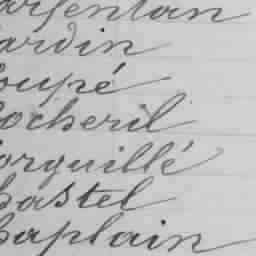 argentan
ardin
oupé
ocheril
orquillé
hastel
haplain